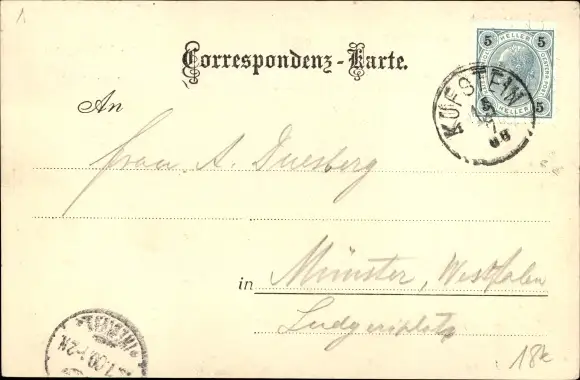 Correspondenz-Karte.
5 HELLER 5
5 HELLER 5
KUFSTEIN
An
Frau A. Duesberg
in Münster, Westfalen
Ludgeriplatz
18k